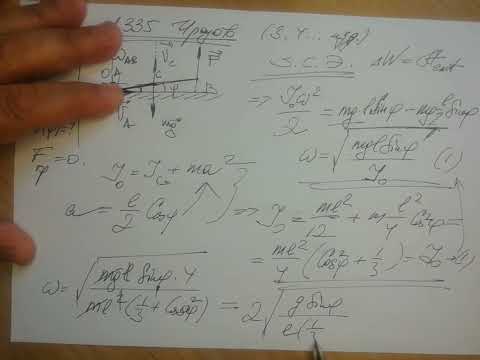 1.335 Иродов
З.С.Э. ΔW = A_ext
ω_AB V_c F
O A C φ B
F_A mg
F_тр = 0.
=> J_0 ω²/2 = mgl sinφ - mg l/2 sinφ
ω = √(mgl sinφ / J_0) (1)
J_0 = J_C + ma²
a = l/2 Cosφ
=> J_0 = ml²/12 + m l²/4 Cos²φ =
= ml²/4 (Cos²φ + 1/3) = J_0 → (1)
ω = √(mgl Sinφ · 4 / ml² (1/3 + Cos²φ)) = 2 √(g sinφ / l (1/3